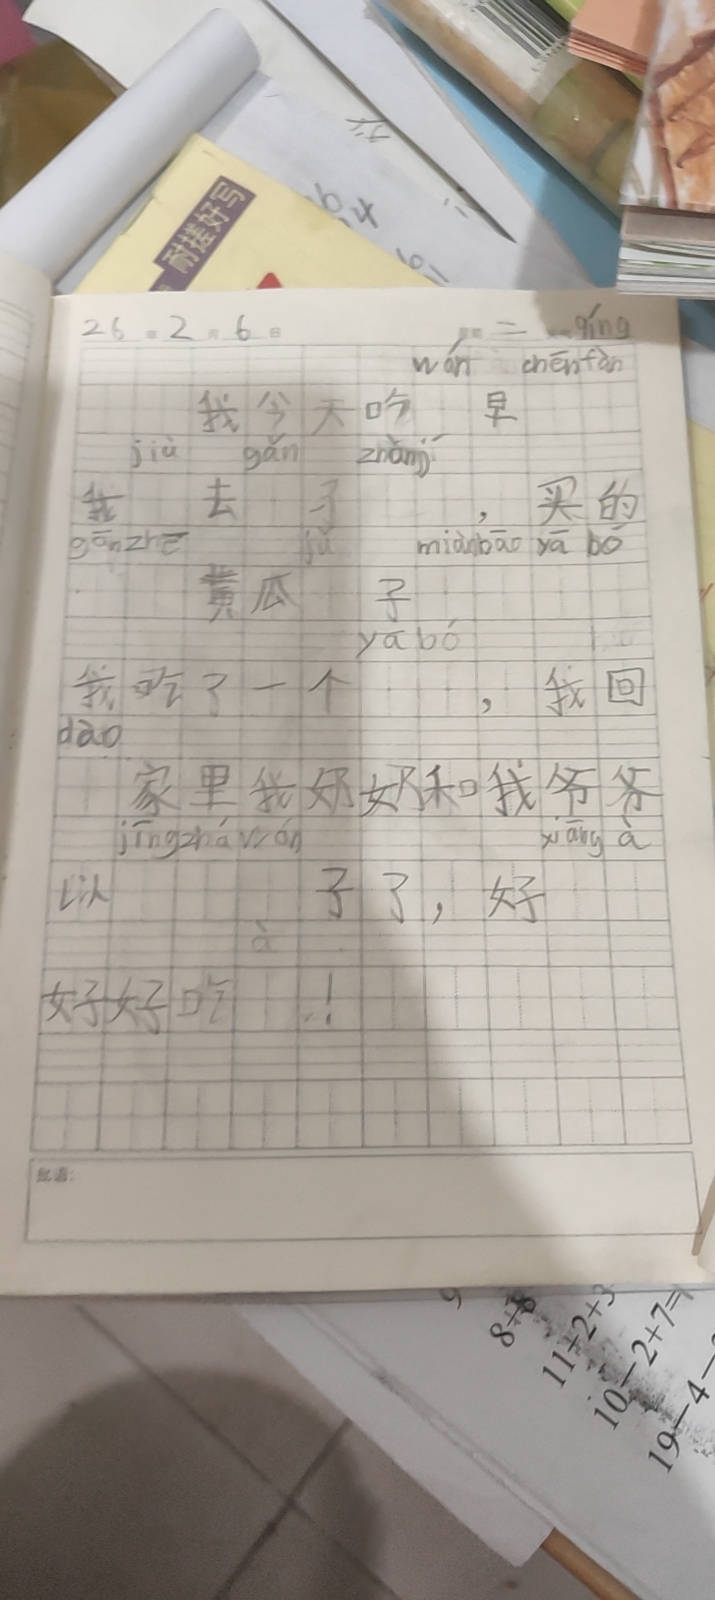 耐搓好写
26 年 2 月 6 日 星期 二 天气 qíng
wón chēnfàn
我今天吃 早
jiù gǎn zhǎngj
我 去 了 ，买的
gānzhē jú miànbāo yā bó
黄瓜 子
yā bó
我吃了一个 ，我回
dào
家里我奶奶和我爷爷
jīngzhá wón xiāng à
以 子了，好
à
好好吃 ！
批语：
8+8
11+2+3
10-2+7=
19-4-